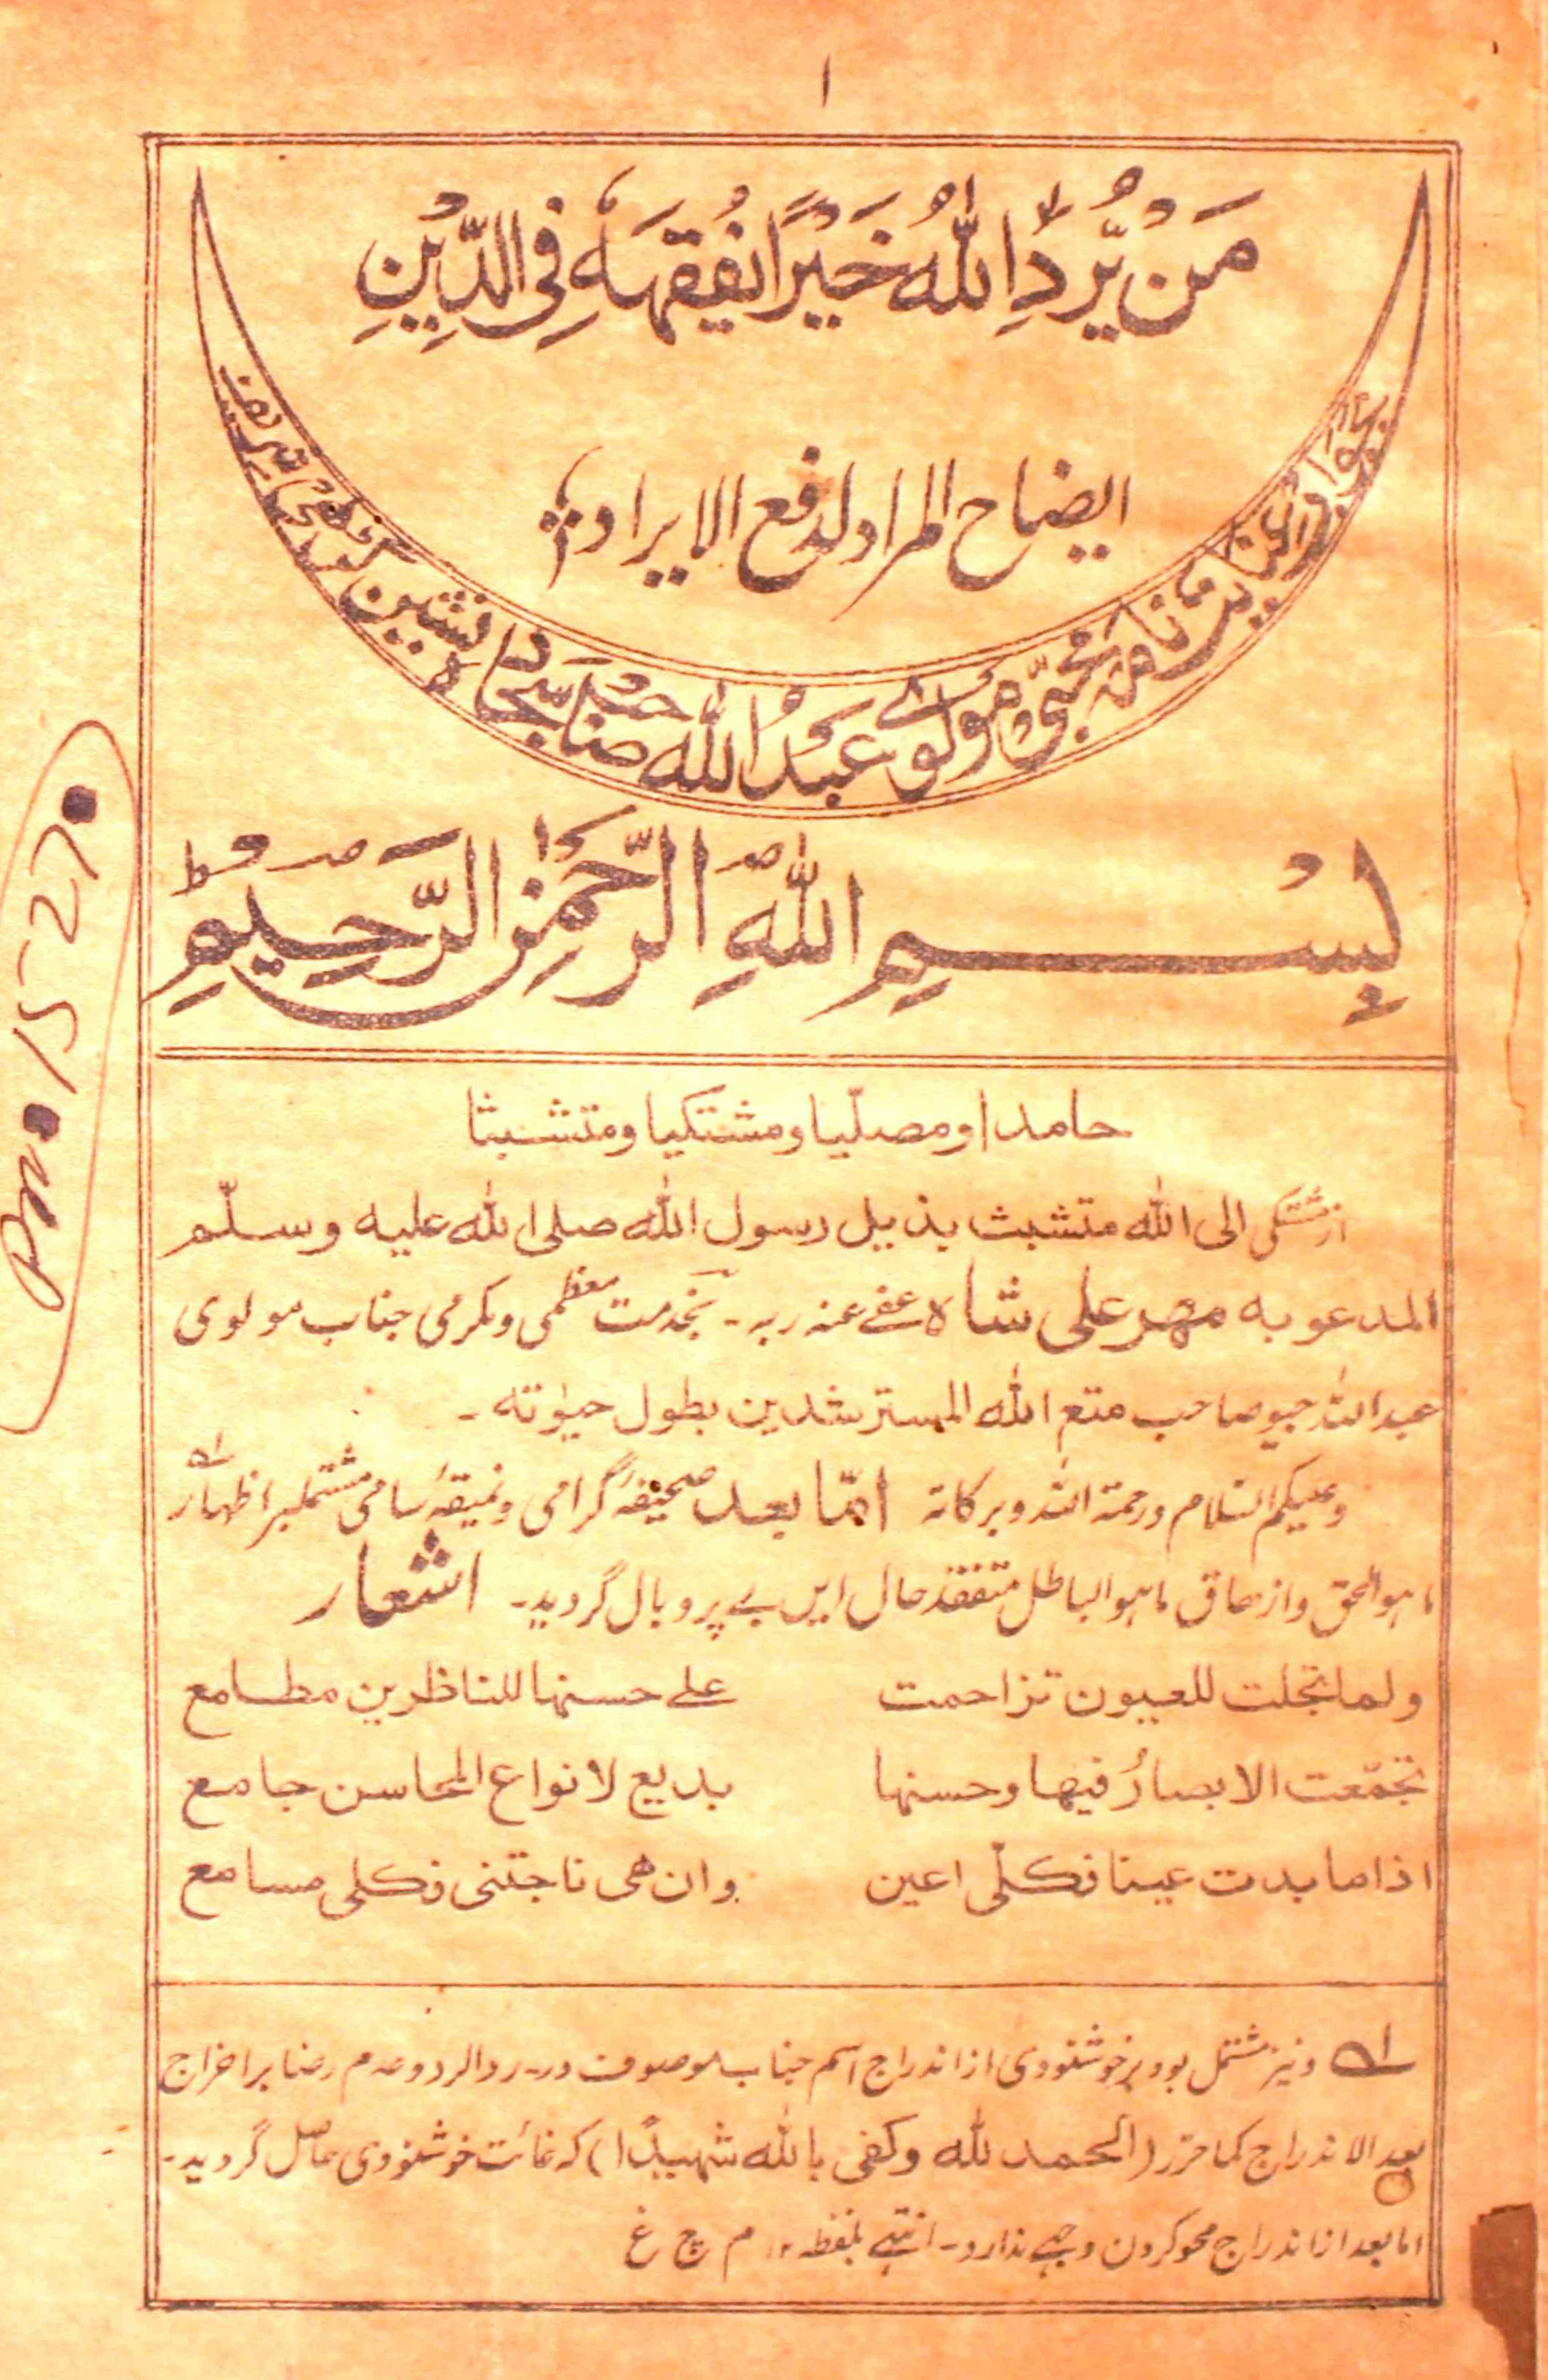 ۱
مَنْ يُّرِدِ اللهُ خَيْرًا يُفَقِّهْهُ فِي الدِّيْنِ
ايضاح المراد لدفع الايراد
نامه محبّی مولوے عبد الله صاحب سجاده نشين گڑهی شريف
بِسْمِ اللّٰهِ الرَّحْمٰنِ الرَّحِيْمِ
حامدا ومصلّيا ومشتكيا ومتشبثا
از مشتكی الی الله متشبث بذيل رسول الله صلی الله عليه وسلّم
المدعو به مهر علی شاه عفے عنه ربه - بخدمت معظمی ومكرمی جناب مولوی
عبدالله جيوصاحب متع الله المسترشدين بطول حيٰوته -
وعليكم السلام ورحمة الله وبركاته امّا بعد صحيفۂ گرامی ونميقۂ سامی مشتملبر اظهار
ما هو الحق وازهاق ما هو الباطل متفقد حال ايں بے پر وبال گرديد - اشعار
ولما تجلت للعيون تزاحمت علے حسنها للناظرين مطامع
تجمّعت الابصارُ فيها وحسنها بديع لانواع المحاسن جامع
اذا ما بدت عينا فكلّی اعين وان هی ناجتنی فكلی مسامع
ونيز مشتمل بود برخوشنودی از اندراج اسم جناب موصوف در - رد الرد وعدم رضا بر اخراج
بعد الاندراج كما حرر (الحمد لله وكفى بالله شهيدًا) كه غائت خوشنودی حاصل گرديد -
اما بعد از اندراج محو كردن وجهے ندارد - انتهے بلفظه ۱۲ م ح غ